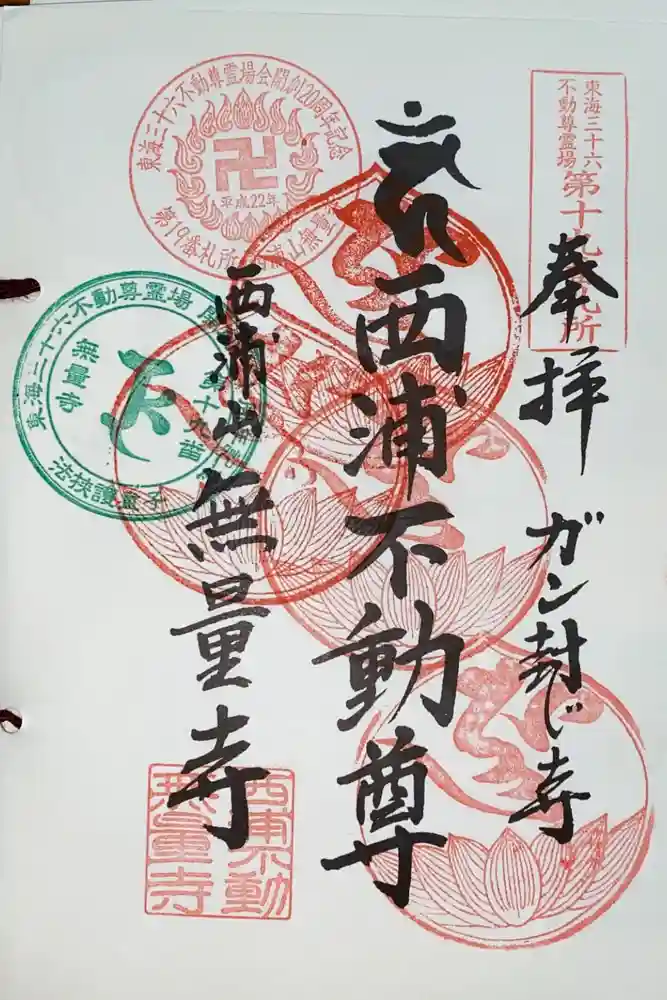 東海三十六
不動尊霊場
第十九番札所
奉拝
ガン封じ寺
西浦不動尊
西浦山
無量寺
東海三十六不動尊霊場会開創20周年記念
平成22年
第19番札所
東海三十六不動尊霊場
無量寺
西浦不動
無量寺